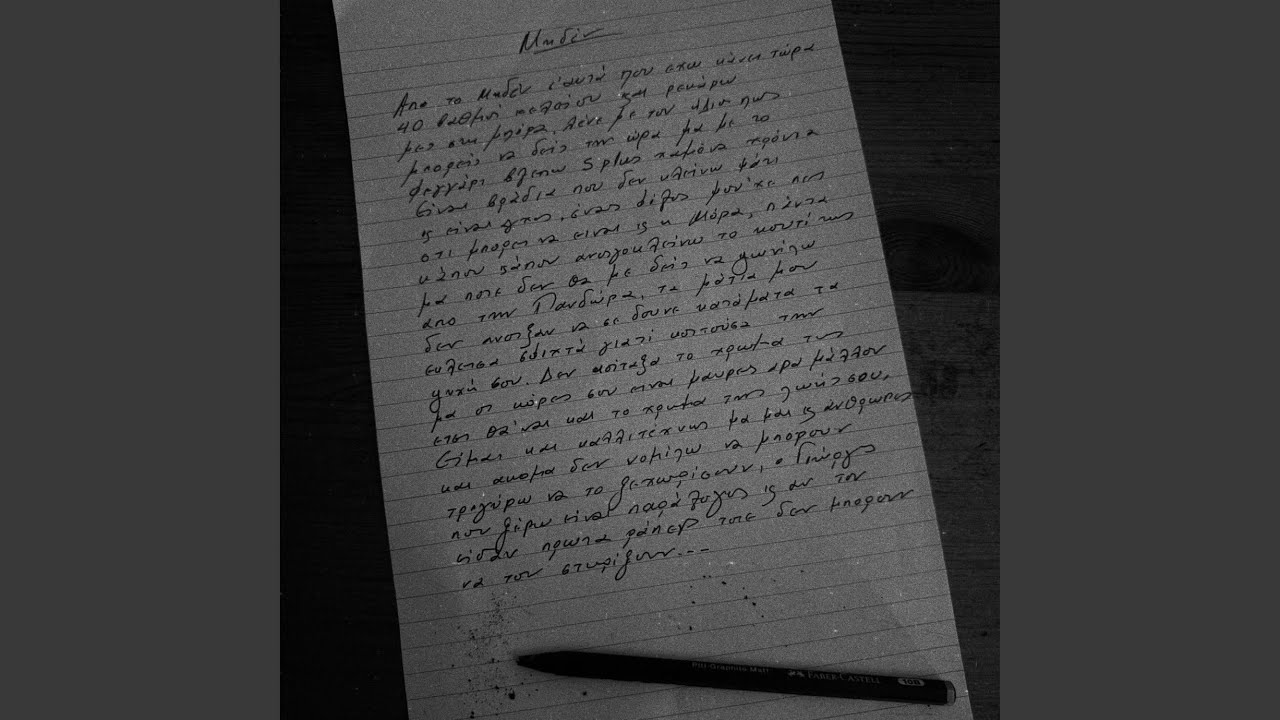 Μηδέν
Απο το μηδέν κ'αυτά που εχω κάνει τώρα
40 βαθμοί κελσίου και ρεκάρω
μες στη μπόρα, λένε με τον ήλιο πως
μπορείς να δεις την ώρα μα με το
φεγγάρι βλέπω 5 plus χαμένα χρόνια
Είναι βράδια που δεν κλείνω μάτι
κ είναι λγκς, ένας φίλος μου'χε πει
οτι μπορει να ειναι κ η Μόρα, πάντα
κάπου κάπου ανοιγοκλείνω το κουτί της
μα ποτε δεν θα με δεις να ψωνίζω
απο την Πανδώρα, τα μάτια μου
δεν ανοιξαν να σε δουνε κατάματα τα
εκλεισα σφιχτά γιατί κοιτούσα την
ψυχή σου. Δεν κοίταξα το χρωμα της
μα οι κόρες σου ειναι μαυρες αρα μάλλον
ετσι θα'ναι και το χρωμα της ζωής σου.
Είμαι και καλλιτέχνης μα και κ άνθρωπος
και ακομα δεν νομίζω να μπορουν
τριγύρω να το ξεχωρίσουν, ο Γιώργος
που ξέρω είναι παράλογος κ αν τον
είδαν πρωτα ράπερ τοτε δεν μπορουν
να τον στηρίξουν...
Pitt Graphite Matt
FABER-CASTELL
10B